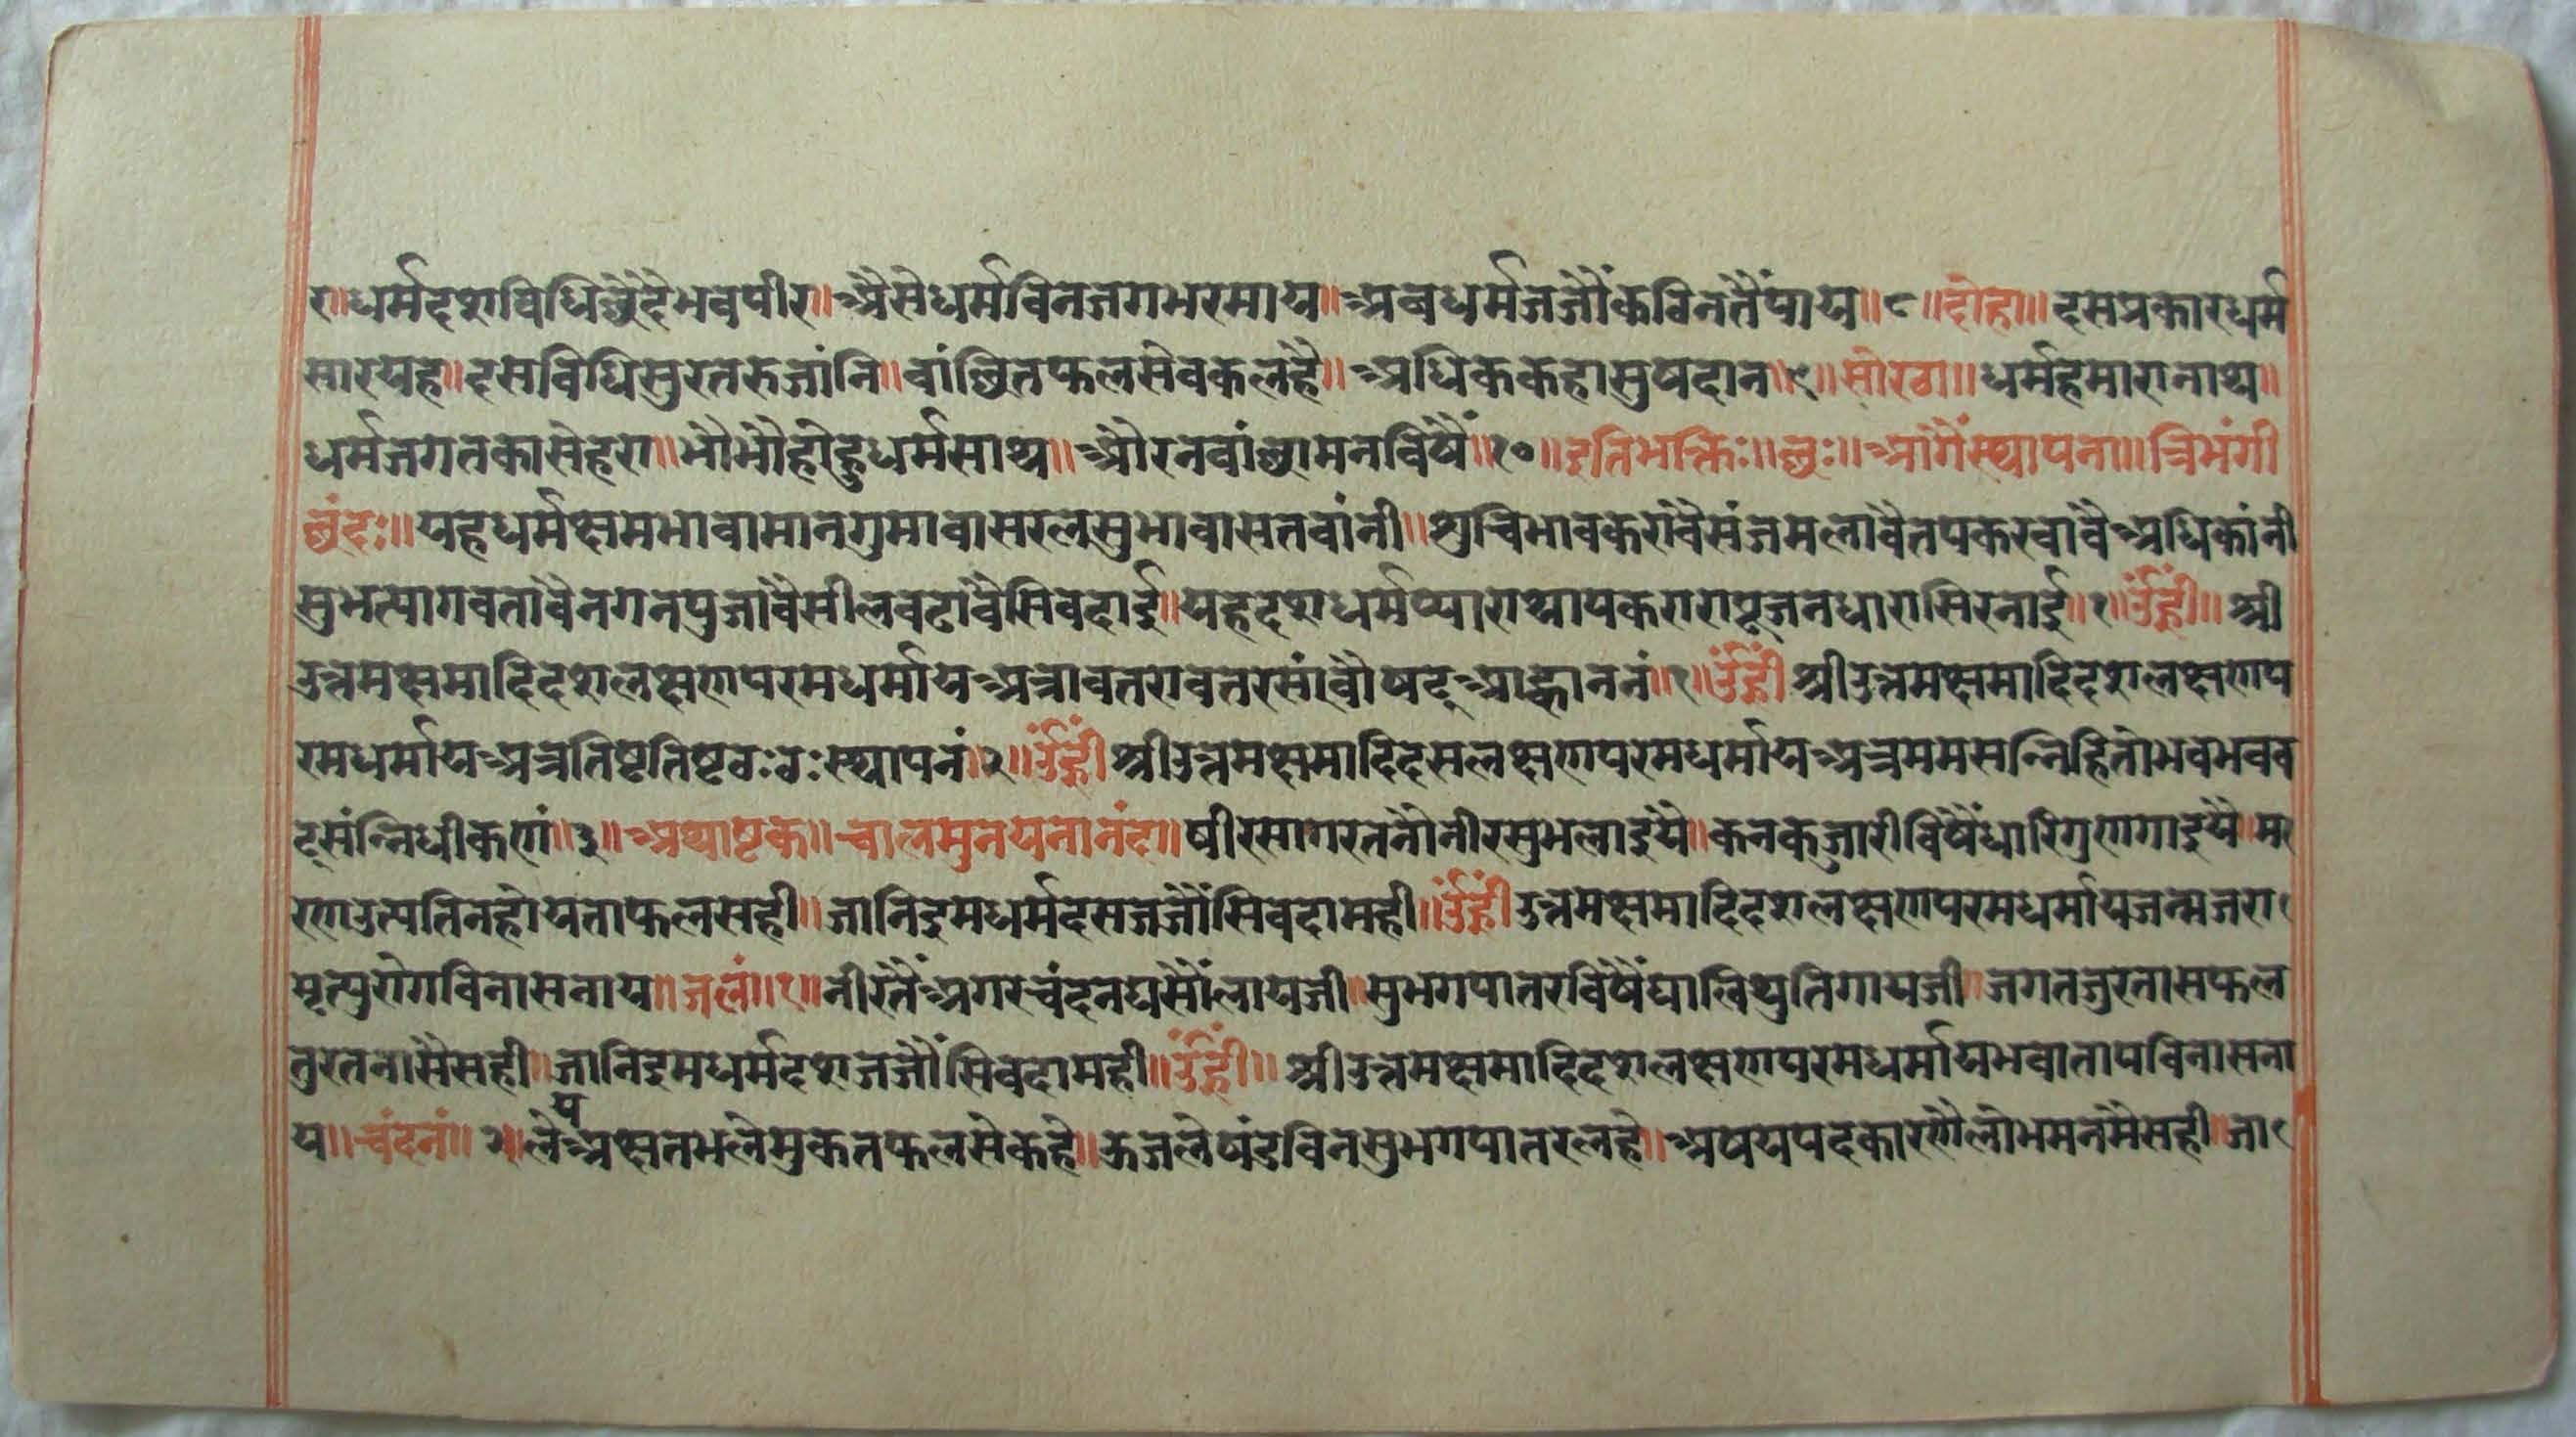 र॥धर्मदशविधिछेदैभवपीर॥अैसेधर्मविनजगभरमाय॥अवधर्मजजौंकविनतैंपाय॥८॥दोहा॥दसप्रकारधर्म
सारयह॥दसविधिसुरतरुजांनि॥वांछितफलसेवकलहै॥अधिककहासुषदान॥९॥सोरठा॥धर्महमारानाथ॥
धर्मजगतकासेहरा॥भौभौहोहुधर्मसाथ॥औरनवांछामनविषैं॥१०॥इतिभक्तिः॥छः॥आगैंस्थापना॥त्रिभंगी
छंदः॥यहधर्मक्षमभावामानगुमावासरलसुभावासतवांनी॥शुचिभावकरावैसंजमलावैतपकरवावैअधिकांनी
सुभत्यागवतावैनगनपुजावैसीलवटावैसिवदाई॥यहदशधर्मप्याराथापकरारापूजनधारासिरनाई॥१॥उँह्रीं॥श्री
उत्तमक्षमादिदशलक्षणपरमधर्मायअत्रावतरावतरसंवौषट्आह्वाननं॥१॥उँह्रीं श्रीउत्तमक्षमादिदशलक्षणप
रमधर्मायअत्रतिष्टतिष्टठःठःस्थापनं॥२॥उँह्रीं श्रीउत्तमक्षमादिदसलक्षणपरमधर्मायअत्रममसन्निहितोभवभवव
ट्संन्निधीकरणं॥३॥अथाष्टक॥चालमुनयनानंद॥षीरसागरतनौनीरसुभलाइयै॥कनकजारीविषैंधारिगुणगाइयै॥म
रणउत्पतिनहोयताफलसही॥जानिइमधर्मदसजजौंसिवदामही॥उँह्रीं उत्तमक्षमादिदशलक्षणपरमधर्मायजन्मजरा
मृत्युरोगविनासनाय॥जलं॥१॥नीरतैंअगरचंदनघसौंलायजी॥सुभगपातरविषैंघालिथुतिगायजी॥जगतजुरनासफल
तुरतनासैसही॥जानिइमधर्मदशजजौंसिवदामही॥उँह्रीं॥श्रीउत्तमक्षमादिदशलक्षणपरमधर्मायभवातापविनासना
य॥चंदनं॥२॥लेअक्षतभलेमुकतफलसेकहे॥ऊजलेषंडविनसुभगपातरलहे॥अषयपदकारणैलोभमनमैसही॥जा